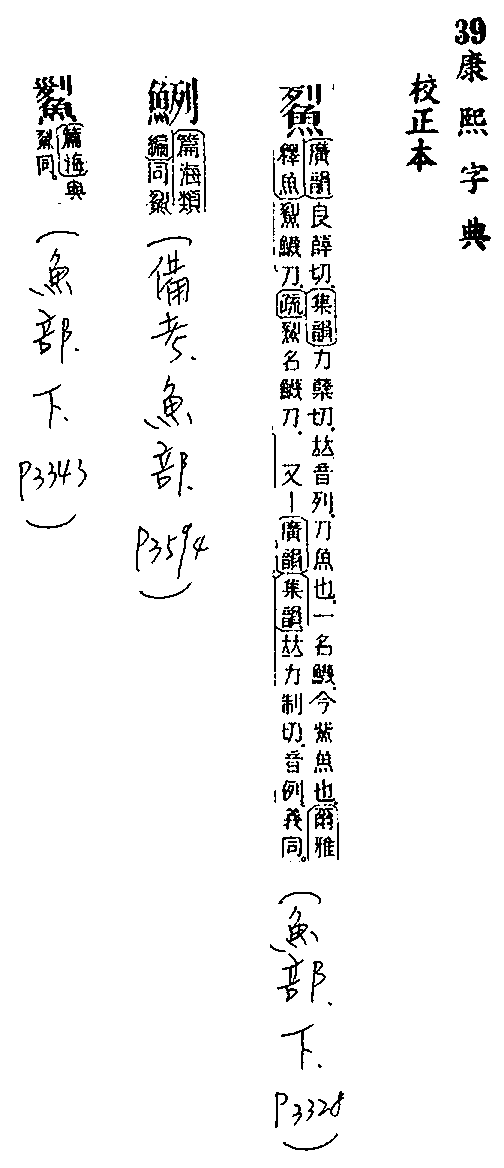 39康熙字典
校正本
鮤
廣韻良薛切.集韻力櫱切.𠀤音列.刀魚也.一名鱴.今鮆魚也.爾雅
釋魚鮤鱴刀.疏鮤名鱴刀. 又丨廣韻集韻𠀤力制切.音例.義同。
(魚部.下.P3328)
鮤
篇海類
編同鮤
(備考.魚部.P3594)
篇海與
鮤同
(魚部.下.P3343)